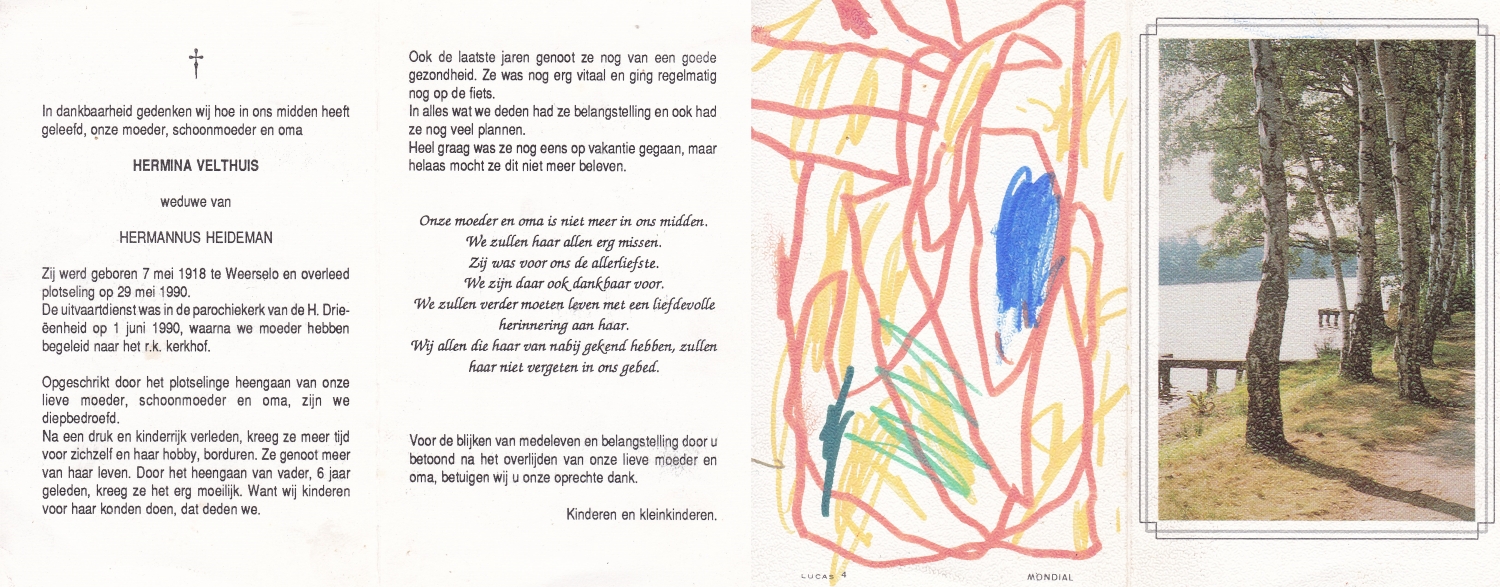 In dankbaarheid gedenken wij hoe in ons midden heeft
geleefd, onze moeder, schoonmoeder en oma
HERMINA VELTHUIS
weduwe van
HERMANNUS HEIDEMAN
Zij werd geboren 7 mei 1918 te Weerselo en overleed
plotseling op 29 mei 1990.
De uitvaartdienst was in de parochiekerk van de H. Drie-
ëenheid op 1 juni 1990, waarna we moeder hebben
begeleid naar het r.k. kerkhof.
Opgeschrikt door het plotselinge heengaan van onze
lieve moeder, schoonmoeder en oma, zijn we
diepbedroefd.
Na een druk en kinderrijk verleden, kreeg ze meer tijd
voor zichzelf en haar hobby, borduren. Ze genoot meer
van haar leven. Door het heengaan van vader, 6 jaar
geleden, kreeg ze het erg moeilijk. Want wij kinderen
voor haar konden doen, dat deden we.
Ook de laatste jaren genoot ze nog van een goede
gezondheid. Ze was nog erg vitaal en ging regelmatig
nog op de fiets.
In alles wat we deden had ze belangstelling en ook had
ze nog veel plannen.
Heel graag was ze nog eens op vakantie gegaan, maar
helaas mocht ze dit niet meer beleven.
Onze moeder en oma is niet meer in ons midden.
We zullen haar allen erg missen.
Zij was voor ons de allerliefste.
We zijn daar ook dankbaar voor.
We zullen verder moeten leven met een liefdevolle
herinnering aan haar.
Wij allen die haar van nabij gekend hebben, zullen
haar niet vergeten in ons gebed.
Voor de blijken van medeleven en belangstelling door u
betoond na het overlijden van onze lieve moeder en
oma, betuigen wij u onze oprechte dank.
Kinderen en kleinkinderen.
LUCAS 4
MONDIAL